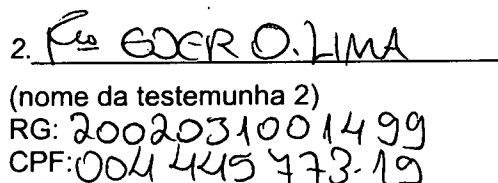 2. Fco EDER O. LIMA
(nome da testemunha 2)
RG: 2002031001499
CPF: 004 445 773-19